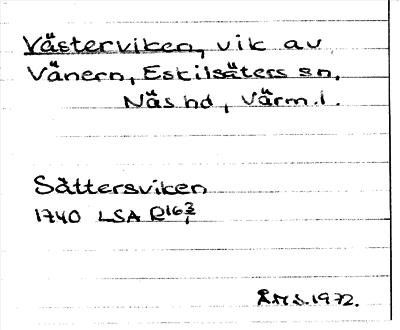 Västerviken, vik av
Vänern, Eskilsäters sn.
Näs hd, Värm.l.
Sättersviken
1740 LSA R16 3/1
Å.M.S. 1972.